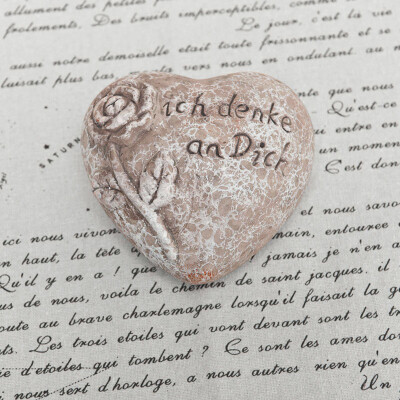 allument des petites
frolements. Des bruits imperceptibles, comme
Le jour, c'est la vie
aussi notre demoiselle etait toute frissonnante et se
luisait plus bas, vers nous en ondulant au
SATURN
ich denke
an Dich
que nous
Qu'est-ce
entre en
un momen
C'est don
ici nous vivon et nous savo
en haut, la tête entouree
Qu'il y en a ! que jamais je n'en a
us de nous, voila le chemin de saint jacques. il
oute au brave charlemagne lorsqu'il faisait la g
Les trois etoiles qui vont devant sont les tro
e d'etoiles qui tombent ? Ce sont les ames do
i nous sert d'horloge, a nous autres rien qu'en
Un